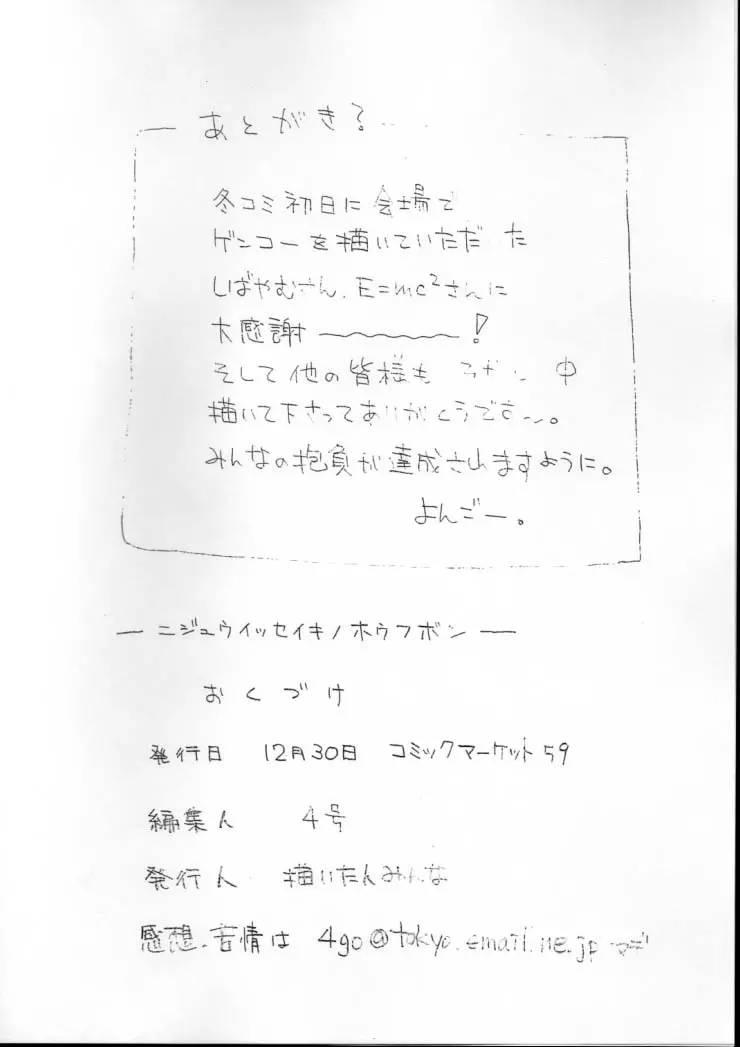 あとがき?
冬コミ初日に会場で
ゲンコーを描いていただた
しばやむさん、E=mc²さんに
大感謝〜!
そして他の皆様も 中
描いて下さってありがとうです〜。
みんなの抱負が達成されますように。
よんごー。
ーニジュウイッセイキノホウフボンー
おくづけ
発行日 12月30日 コミックマーケット59
編集人 4号
発行人 描いたんみんな
感想、苦情は 4go@tokyo.email.ne.jp マデ